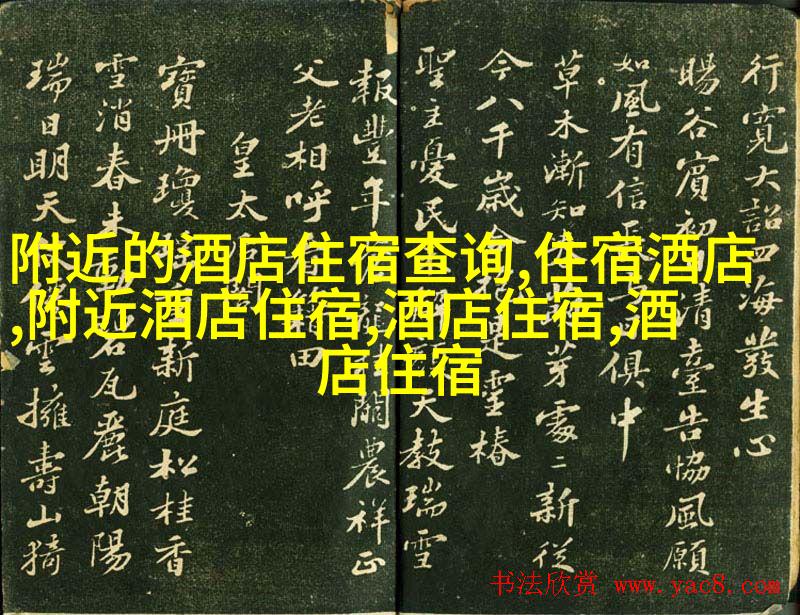 行寬大詔四海發生心
暘谷賓初清臺告協風願
如風有信俱中
草木漸知芽處〻新從
今八千歲是靈椿
聖主憂民天教瑞雪
報豐年關農祥正
父老相呼田
皇太
寶冊瓊新庭松桂香
雪消春未瓦麗朝陽
瑞日明天雲擁壽山猗
附近的酒店住宿查询,住宿酒店
,附近酒店住宿,酒店住宿,酒
店住宿
书法欣赏 www.yac8.com